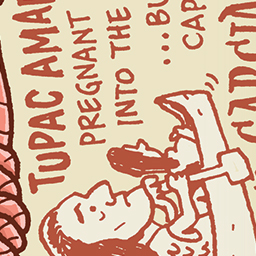 TUPAC AMA
PREGNANT
INTO THE
...BU
CAP
GARCIA